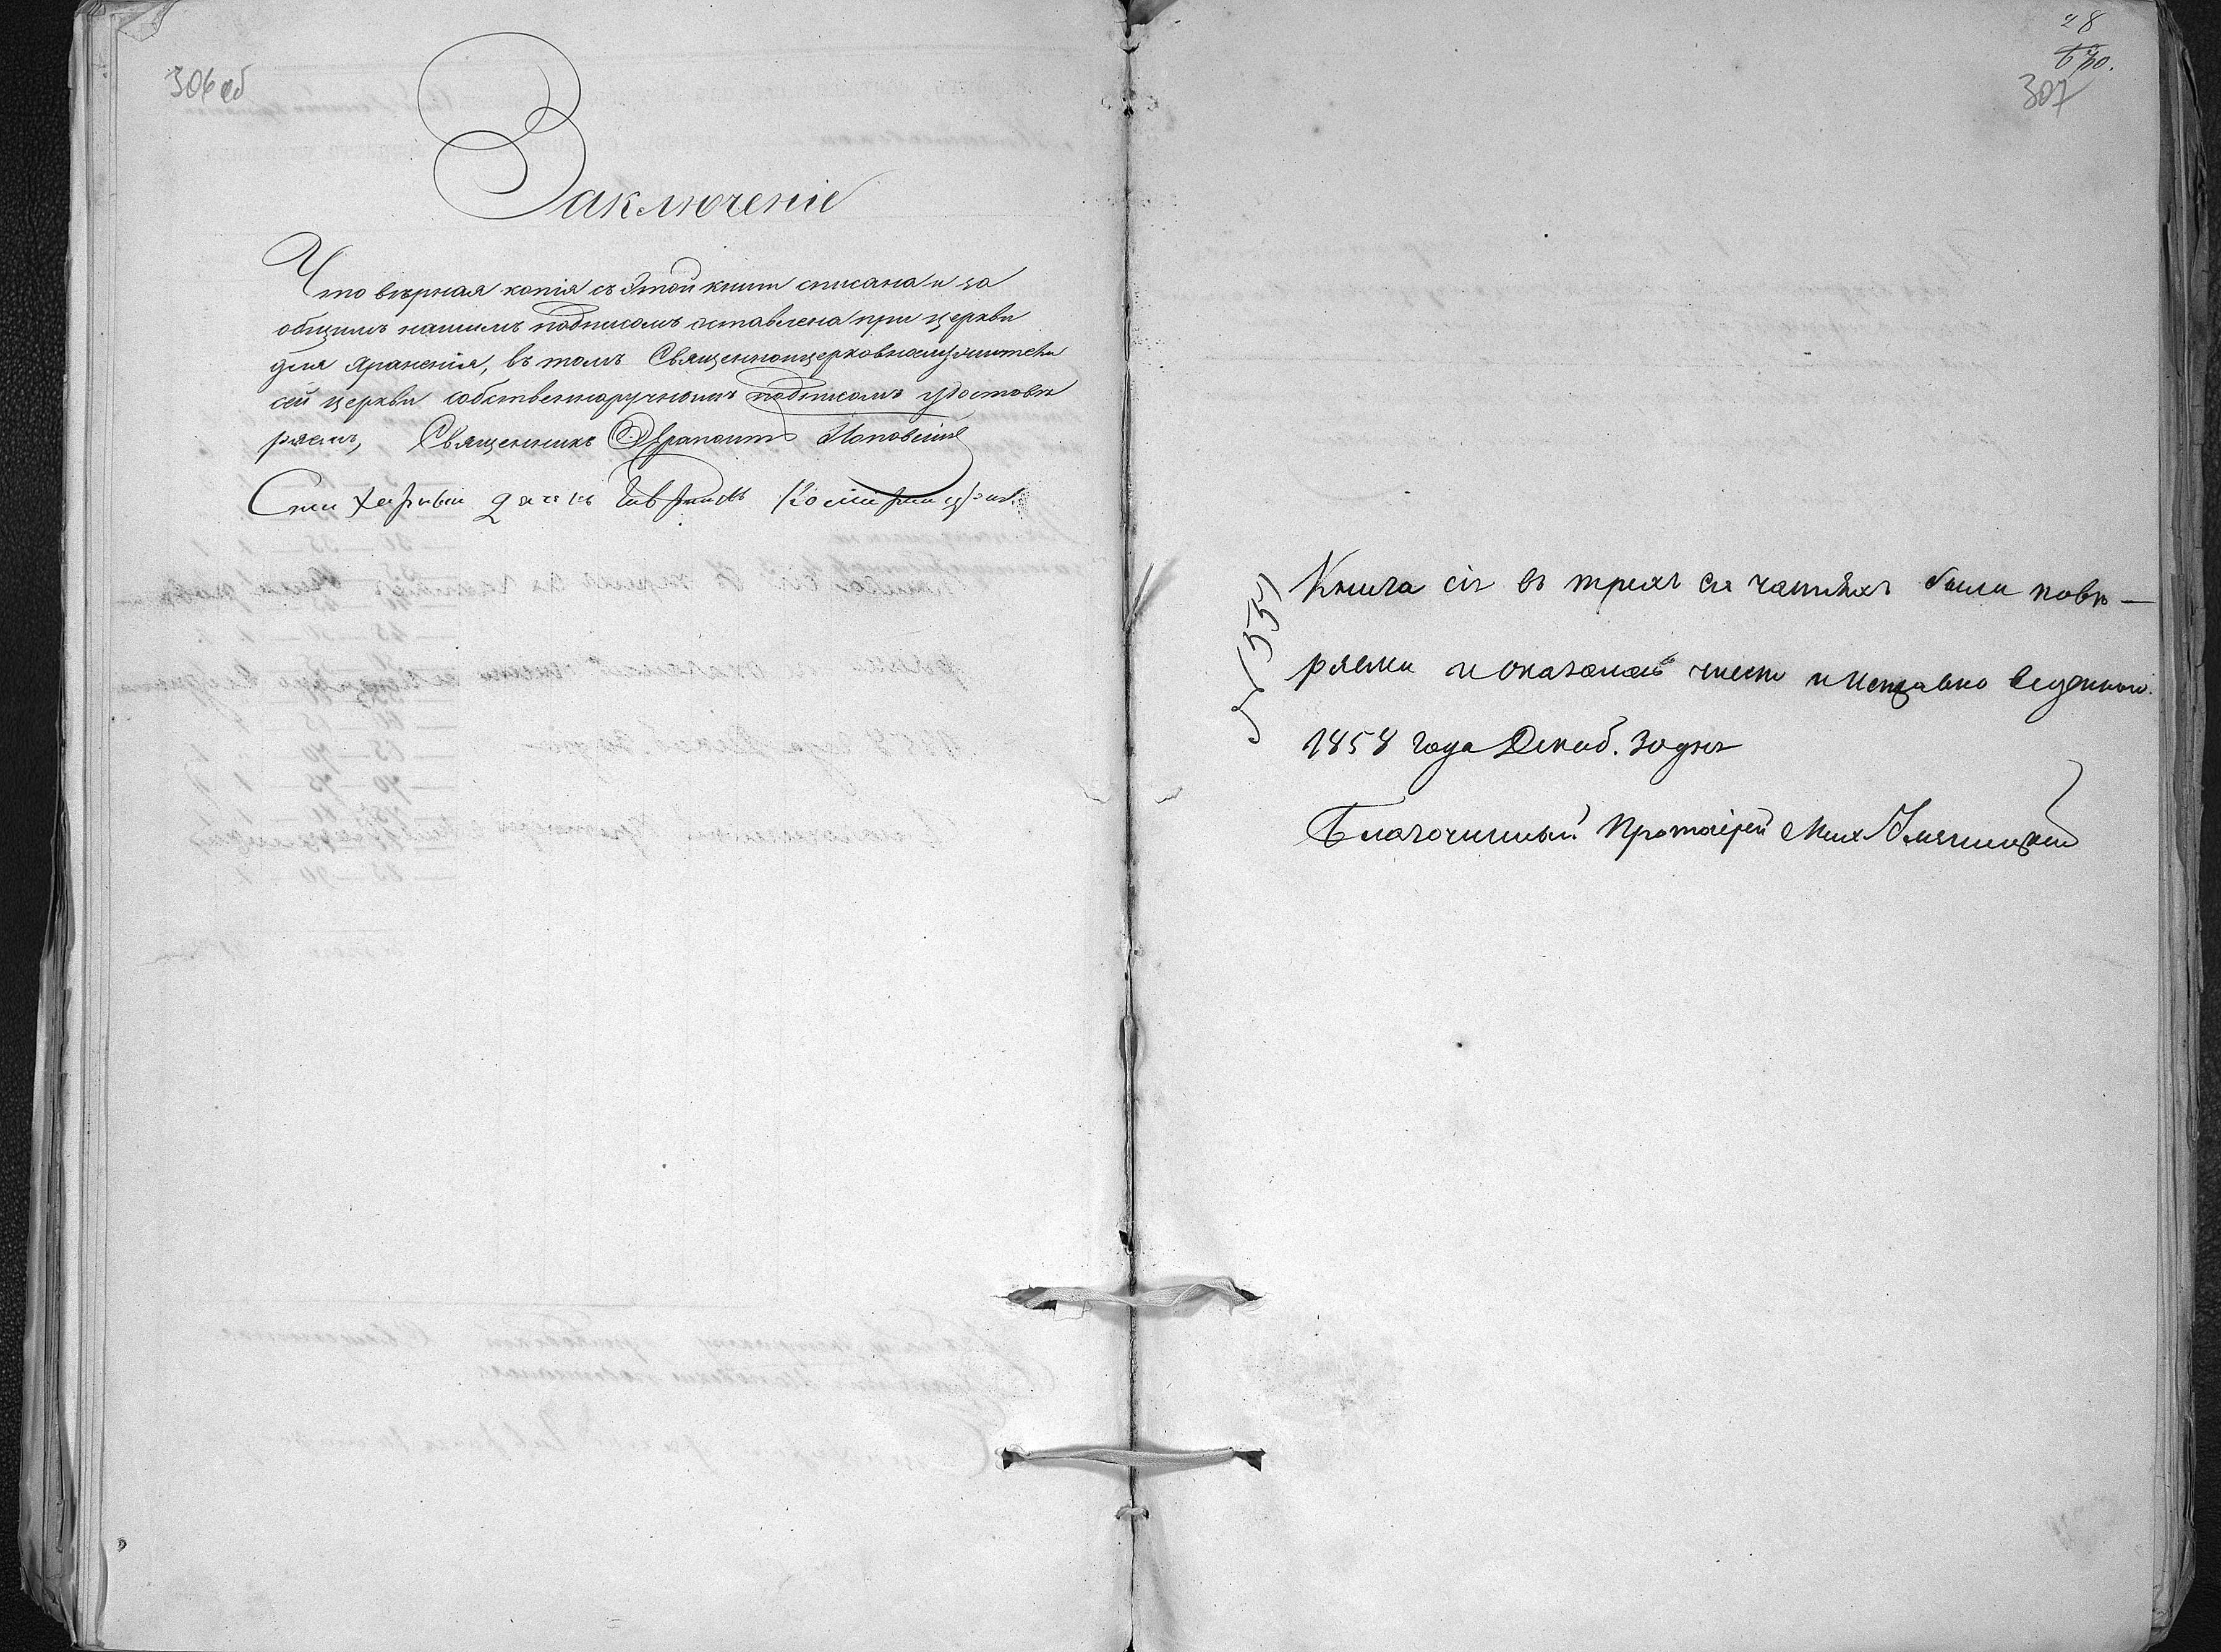 306 об
Заключеніе
Что вѣрная копія съ этой книги списана и за
общимъ нашимъ подписомъ оставлена при церкви
для храненія, въ томъ Священноцерковнослужители
сей церкви собственноручнымъ подписомъ удостовѣ
ряемъ, Священникъ Ферапонтъ Поповскій
Стихарный дячекъ
28
307
Книга сія въ трехъ ея частяхъ была повѣ-
ряема и оказалась чисто и исправно веденною.
1858 года Декаб. 30 дня
Благочинный Протоіерей Мих.